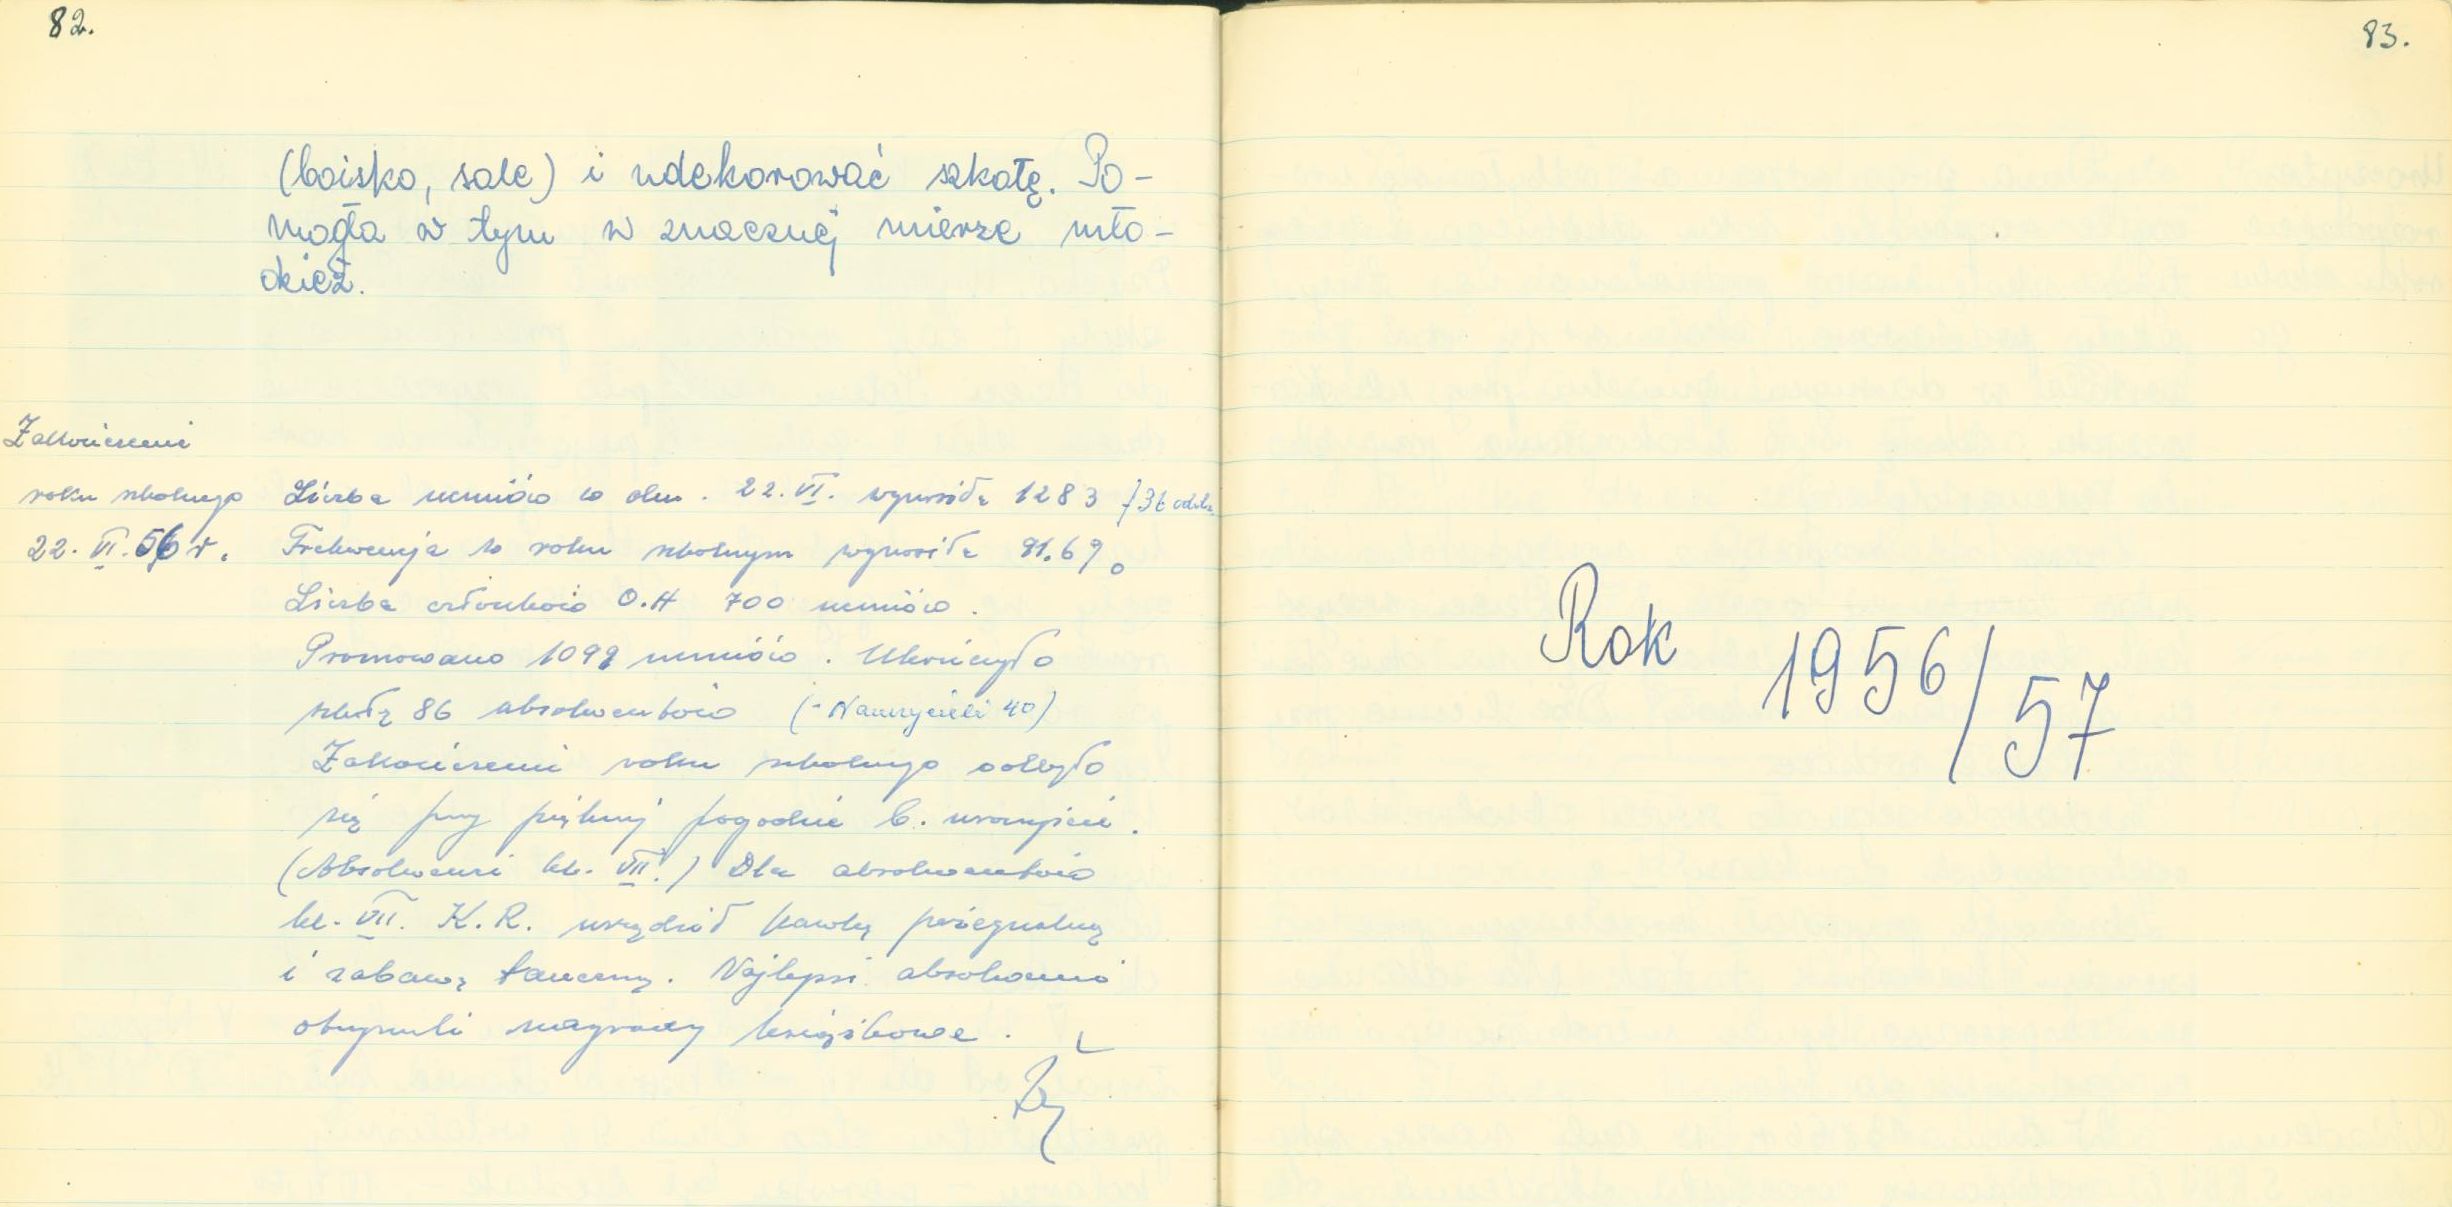 82.
(boisko, sale) i udekorować szkołę. Po-
mogła w tym w znacznej mierze mło-
dzież.
Zakończenie
roku szkolnego
22. VI. 56 r.
Liczba uczniów w dn. 22. VI. wynosiła 1283
Frekwencja w roku szkolnym wynosiła 91.69
Liczba członków O.H 700 uczniów.
Promowano 1092 uczniów. Ukończyło
szkołę 86 absolwentów (Nauczycieli 40)
Zakończenie roku szkolnego odbyło
się przy pięknej pogodzie b. uroczyście.
(Absolwenci kl. VII.) Dla absolwentów
kl. VII. K.R. urządził kawkę pożegnalną
i zabawę taneczną. Najlepsi absolwenci
otrzymali nagrody książkowe.
83.
Rok 1956/57